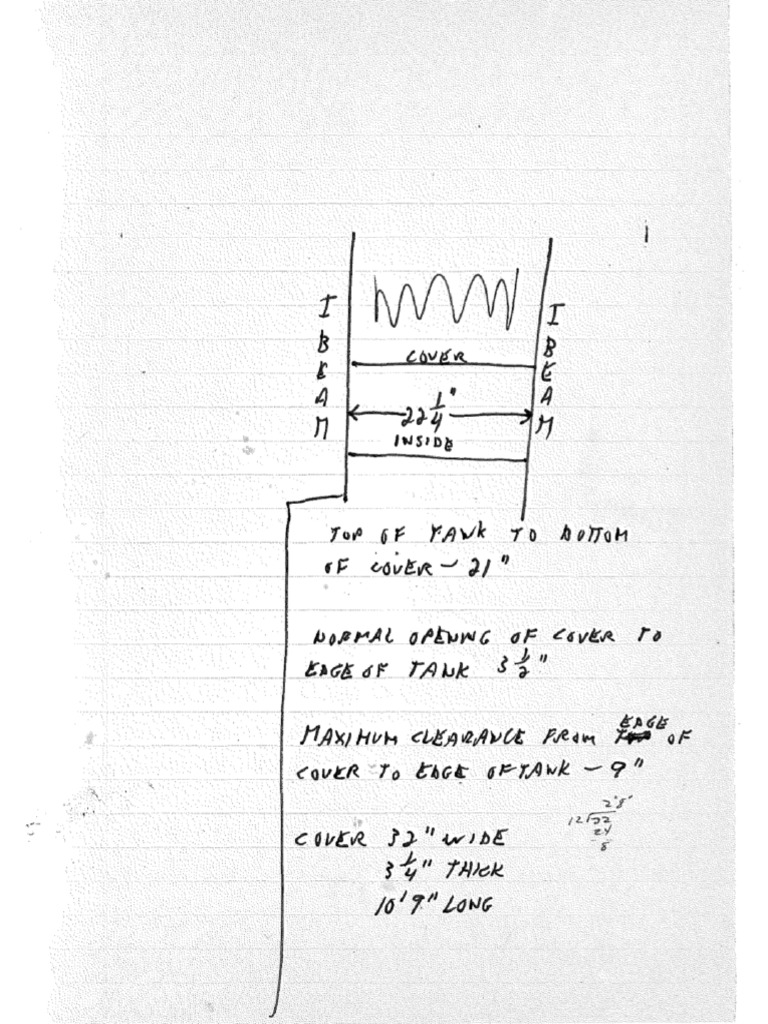 I BEAM
I BEAM
COVER
22 1/4"
INSIDE
TOP OF TANK TO BOTTOM
OF COVER - 21"
NORMAL OPENING OF COVER TO
EDGE OF TANK 3 1/2"
MAXIMUM CLEARANCE FROM EDGE OF
COVER TO EDGE OF TANK - 9"
COVER 32" WIDE
3 1/4" THICK
10' 9" LONG
2'8"
12
24
8